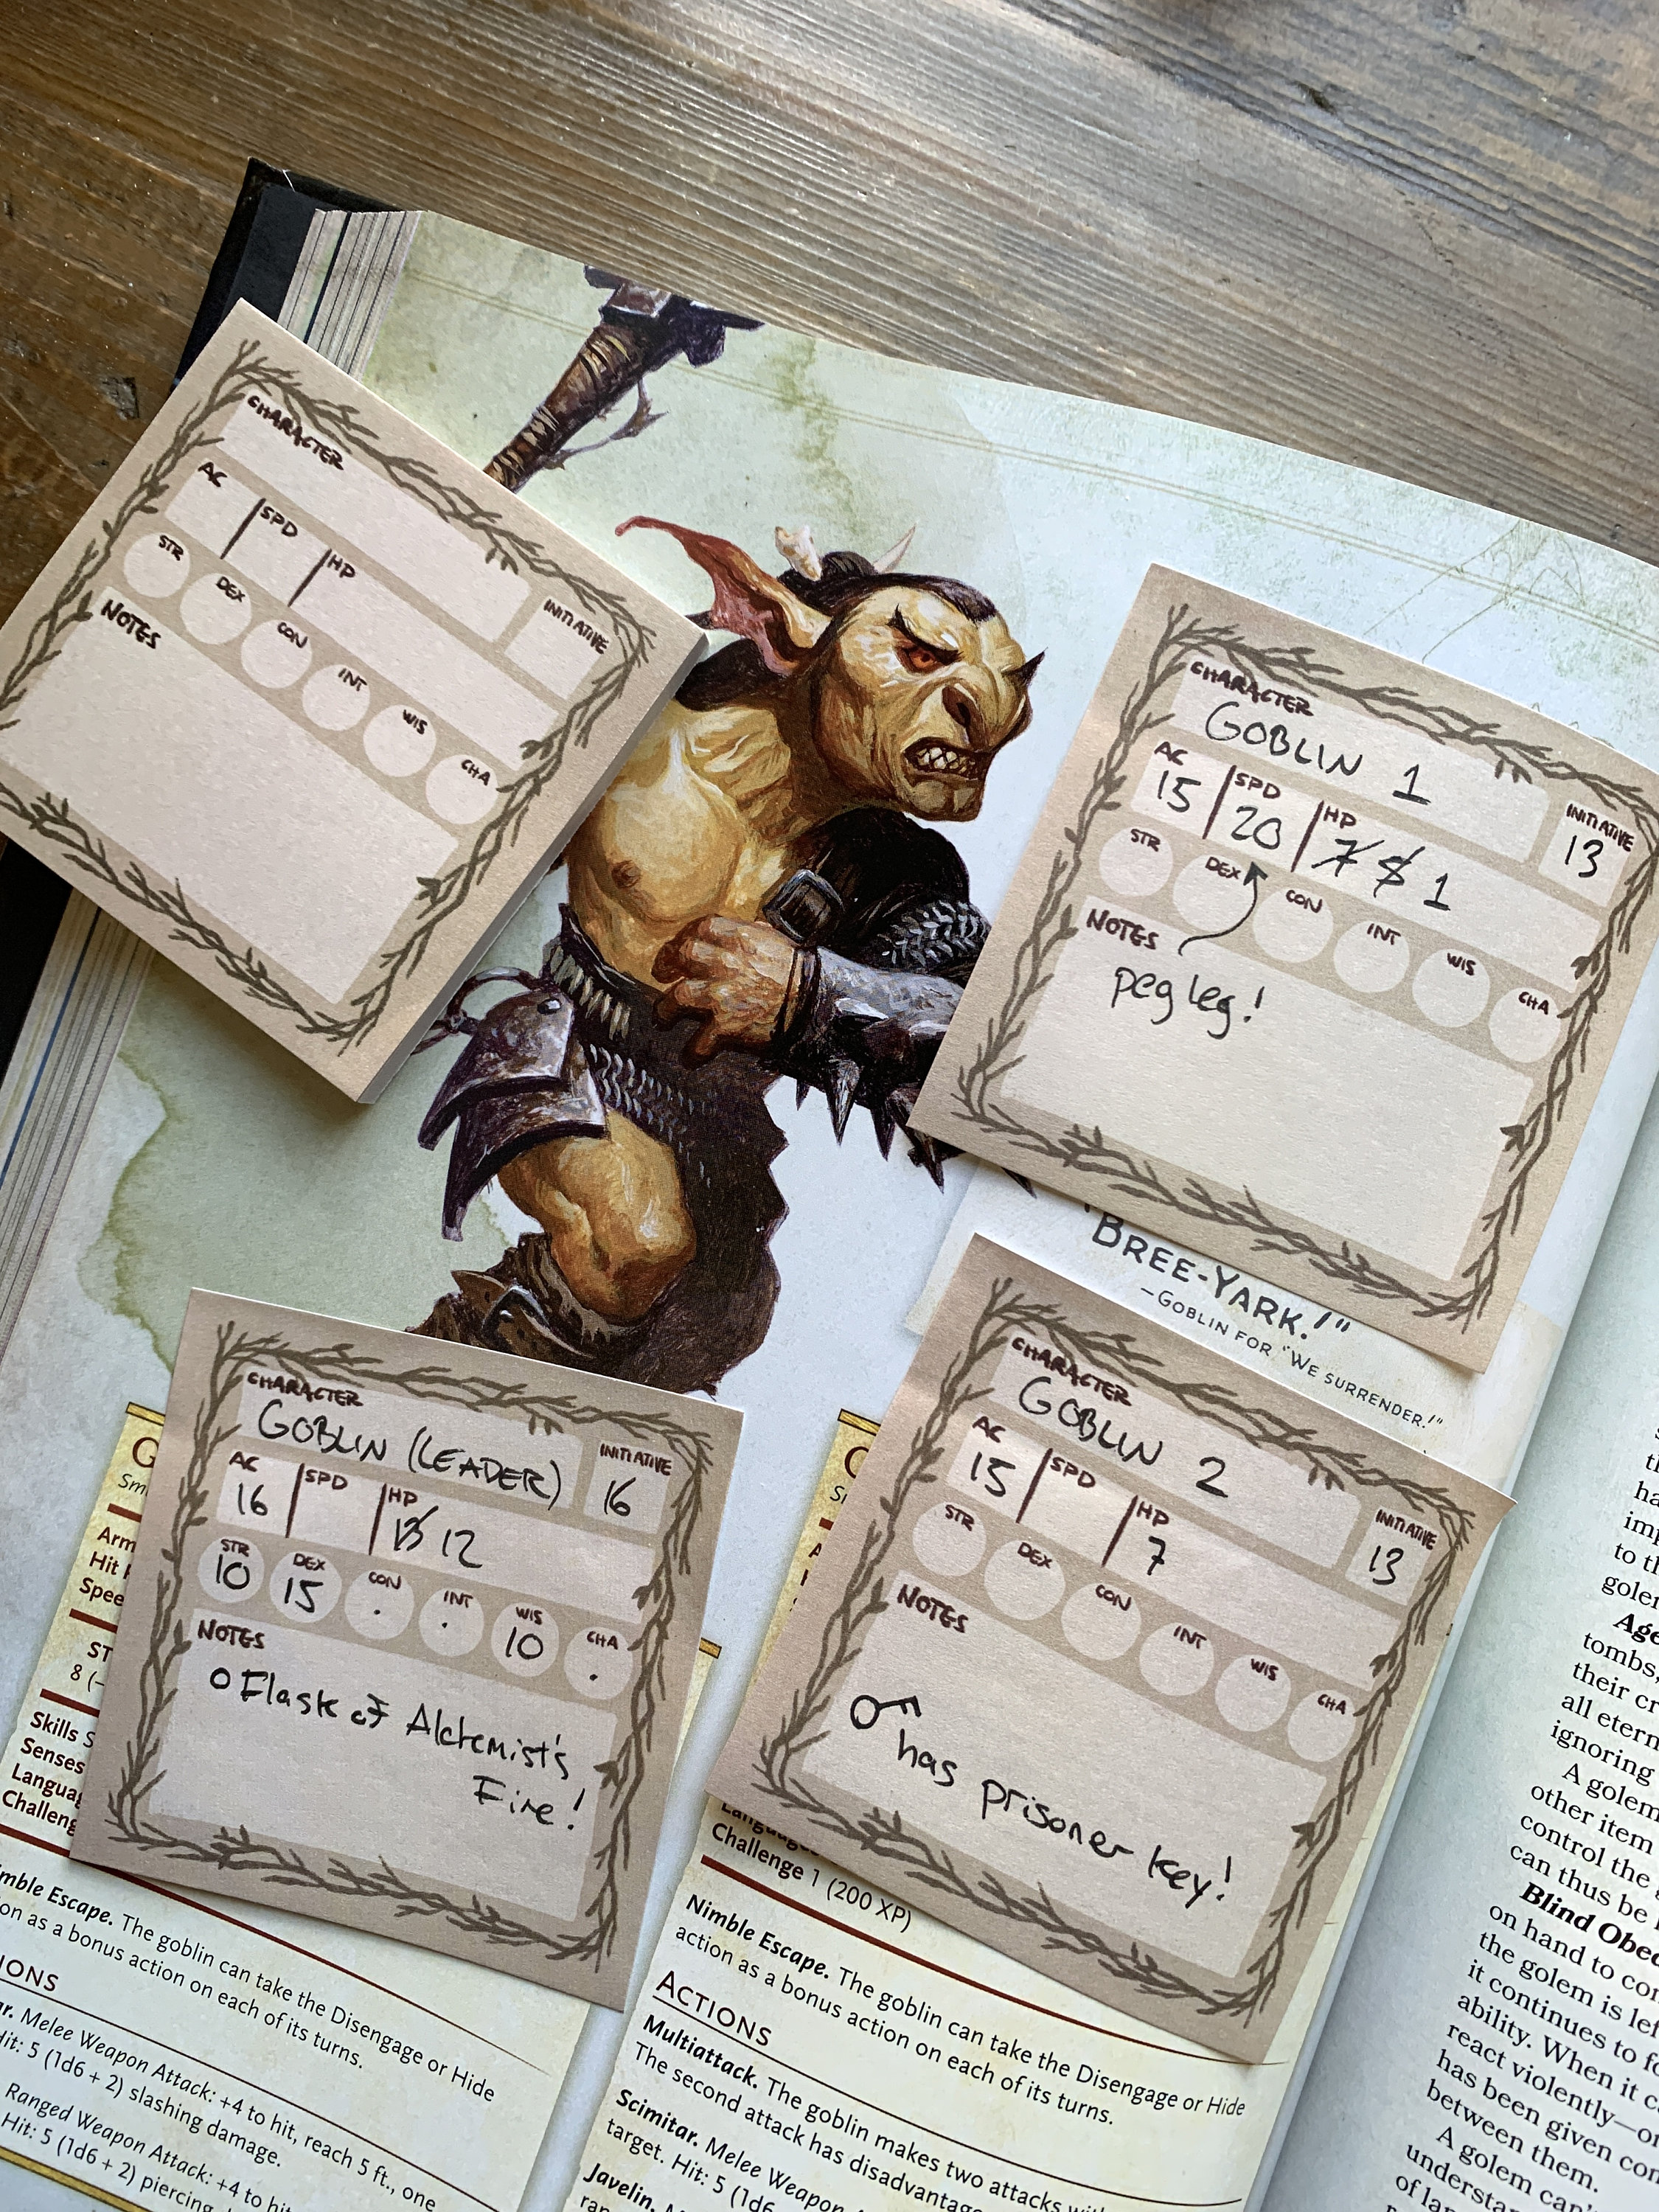 CHARACTER
AC
SPD
HP
INITIATIVE
STR
DEX
CON
INT
WIS
CHA
NOTES
CHARACTER
GOBLIN 1
AC
15
SPD
20
HP
7 5 1
INITIATIVE
13
STR
DEX
CON
INT
WIS
CHA
NOTES
peg leg!
"BREE-YARK!"
—GOBLIN FOR "WE SURRENDER!"
CHARACTER
GOBLIN (LEADER)
AC
16
SPD
HP
13 12
INITIATIVE
16
STR
10
DEX
15
CON
INT
WIS
10
CHA
NOTES
Flask of Alchemist's
Fire!
CHARACTER
GOBLIN 2
AC
15
SPD
HP
7
INITIATIVE
13
STR
DEX
CON
INT
WIS
CHA
NOTES
has prisoner key!
G
Arm
Hit
Spee
ST
8 (–
Skills S
Senses
Langua
Challeng
mble Escape. The goblin can take the Disengage or Hide
on as a bonus action on each of its turns.
IONS
ar. Melee Weapon Attack: +4 to hit, reach 5 ft., one
Hit: 5 (1d6 + 2) slashing damage.
Ranged Weapon Attack: +4 to hit
Hit: 5 (1d6 + 2) piercing
Languages
Challenge 1 (200 XP)
Nimble Escape. The goblin can take the Disengage or Hide
action as a bonus action on each of its turns.
ACTIONS
Multiattack. The goblin makes two attacks wi
The second attack has disadvantage
Scimitar. Melee Weapon A
target. Hit: 5 (1d6
Javelin.
ha
imp
to th
golem
Age
tombs,
their cr
all etern
ignoring
A golem
other item
control the
can thus be
Blind Obed
on hand to con
the golem is lef
it continues to fo
ability. When it ca
react violently—or
has been given con
between them.
A golem can't
understan
of lan